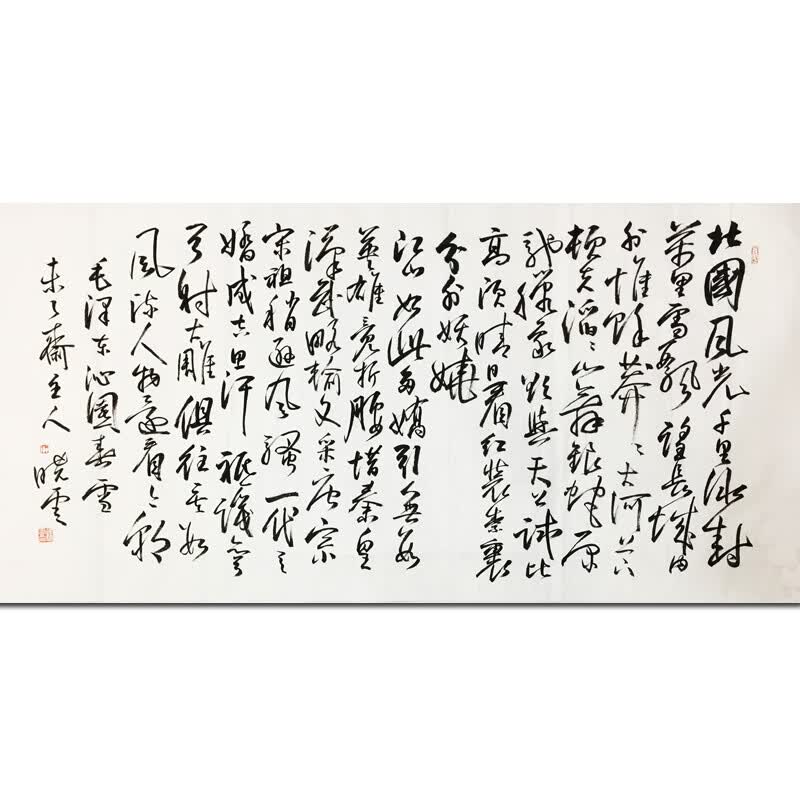 北國風光千里冰封
萬里雪飄望長城內
外惟餘莽〻大河上下
頓失滔〻山舞銀蛇原
馳蠟象欲與天公試比
高須晴日看紅裝素裹
分外妖嬈
江山如此多嬌引無數
英雄競折腰惜秦皇
漢武略輸文采唐宗
宋祖稍遜風騷一代天
驕成吉思汗祇識彎
弓射大雕俱往矣數
風流人物還看今朝
毛澤東沁園春雪
齋主人 曉雲